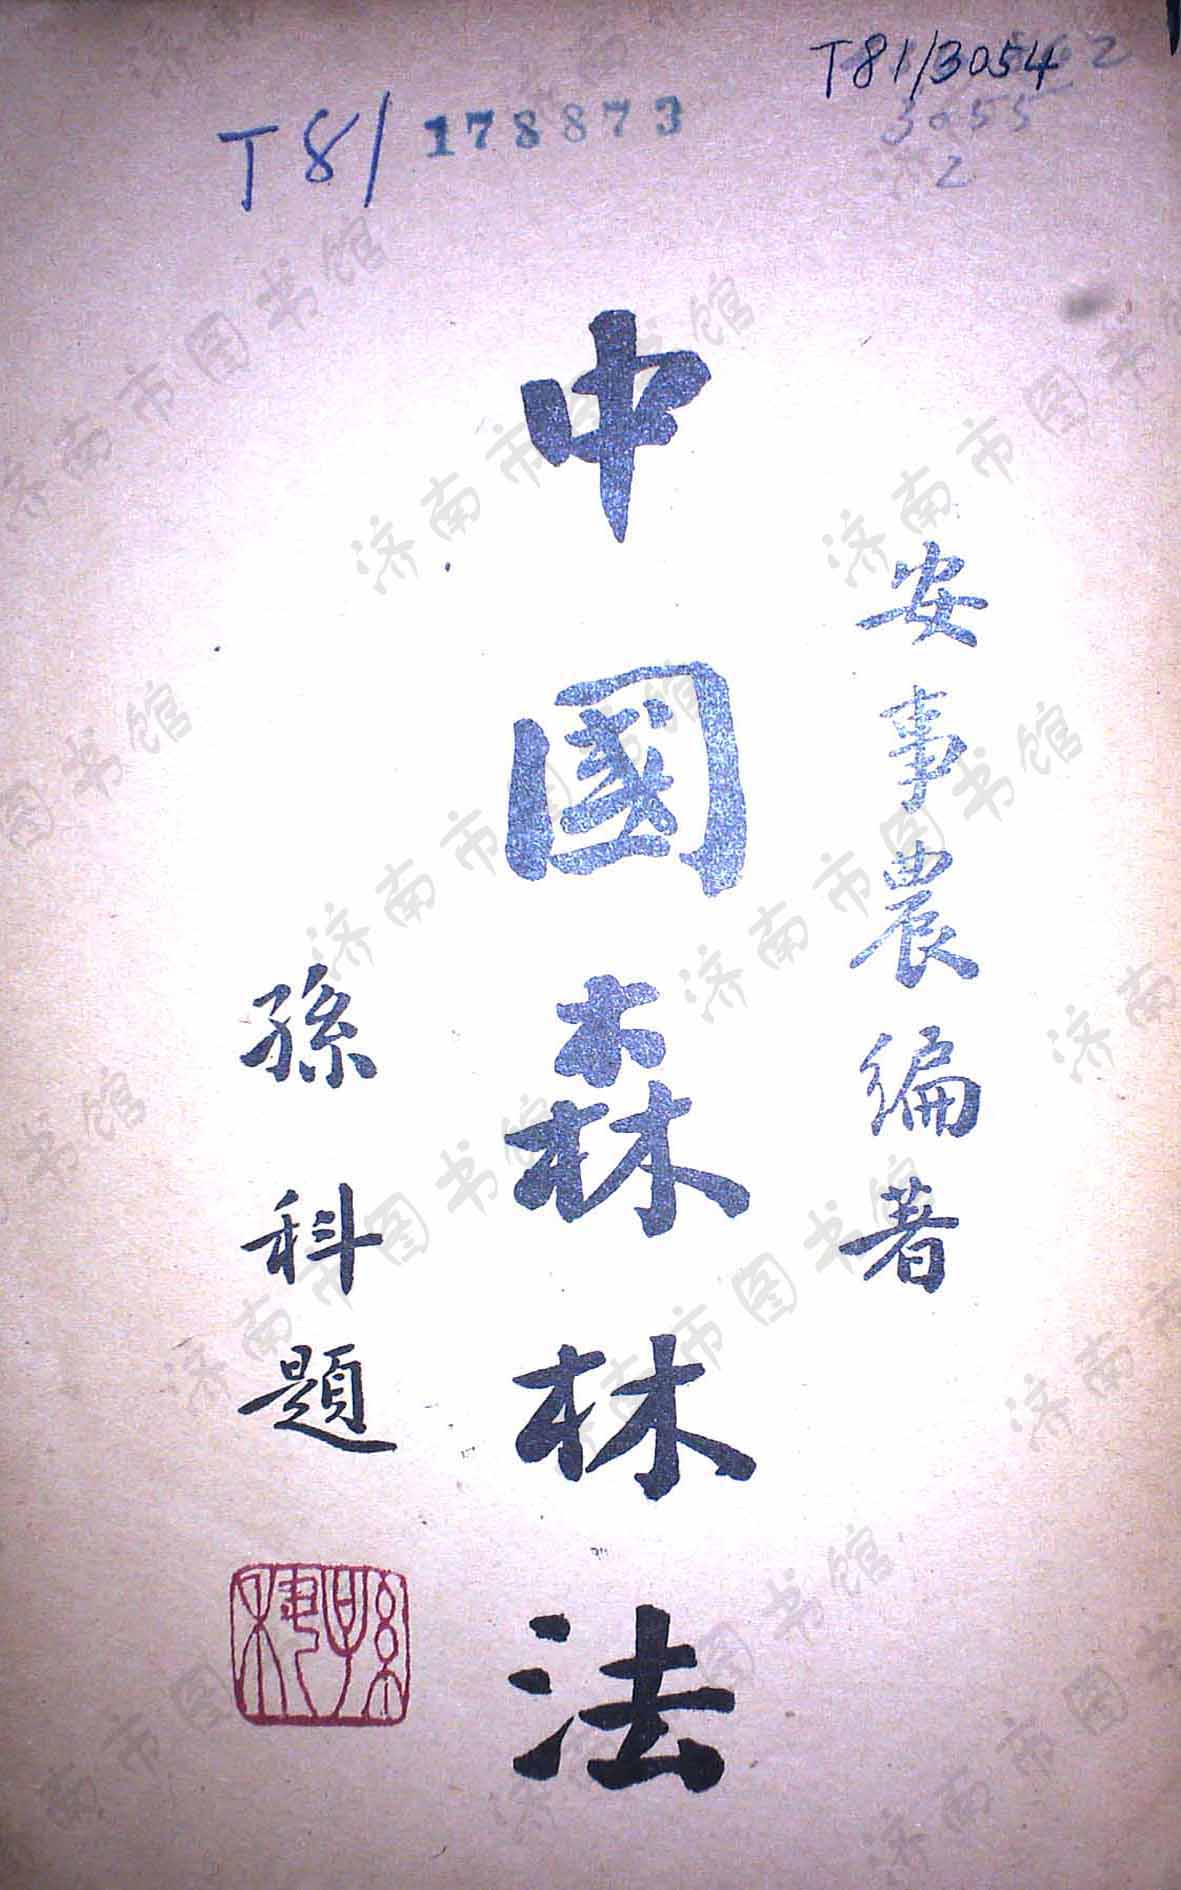 T81/3054
2
3055
2
T81/178873
安事農編著
中國森林法
孫科題
济南市图书馆